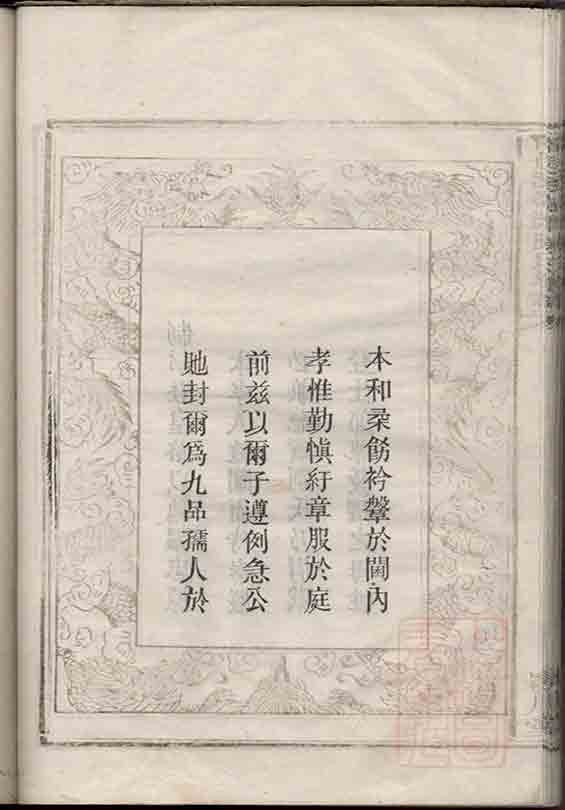 本和柔飭衿鞶於閫內
孝惟勤慎紆章服於庭
前兹以爾子遵例急公
貤封爾爲九品孺人於